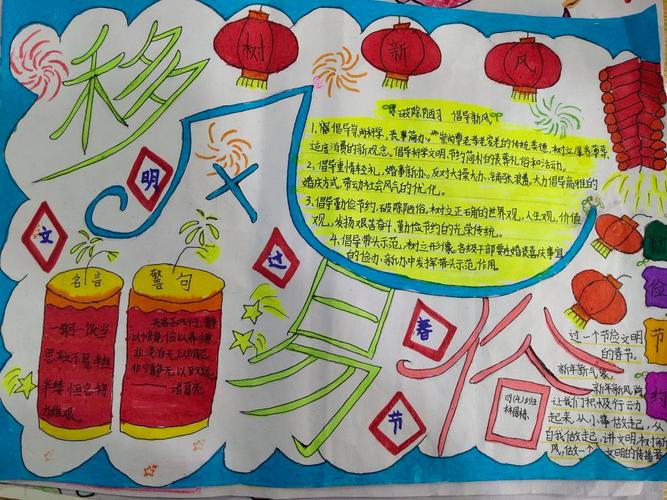 移风易俗
树新风
文明过春节
破除陋习 倡导新风
1、倡导崇尚科学,丧事简办。崇尚尊老养老爱老的传统美德,树立厚养薄葬、
适度消费的新观念。倡导科学文明、节约简朴的丧葬礼俗和活动。
2、倡导重情轻礼,婚事新办。反对大操大办、铺张浪费,大力倡导高雅的
婚庆方式,带动社会风气的优化。
3、倡导勤俭节约,破除陋俗。树立正确的世界观,人生观,价值
观,发扬艰苦奋斗、勤俭节约的光荣传统。
4、倡导带头示范,树立形象。各级干部要婚丧喜庆事宜
的俭办、新办中发挥带头示范作用。
名言
一粥一饭当
思来之不易半丝
半缕恒念物
力维艰
警句
夫君子之行,静
以修身,俭以养德,
非淡泊无以明志,
非宁静无以致远。
诸葛亮
俭
节
约
过一个节俭文明
的春节。
新年新气象,
新年新风尚
让我们积极行动
起来,从小事做起,从
自我做起,讲文明,树新
风,做一个文明的传播者